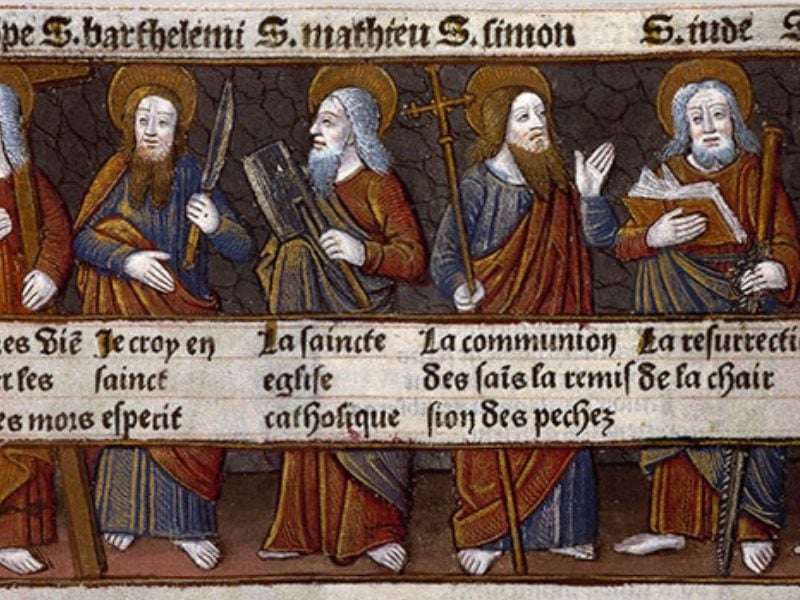 pe S. barthelemi S. mathieu S. simon S. iude S
es viẽ
les
es mors
Je croy en
sainct
esperit
La saincte
eglise
catholique
La communion
des saĩs la remis
sion des pechez
La resurrecti
de la chair